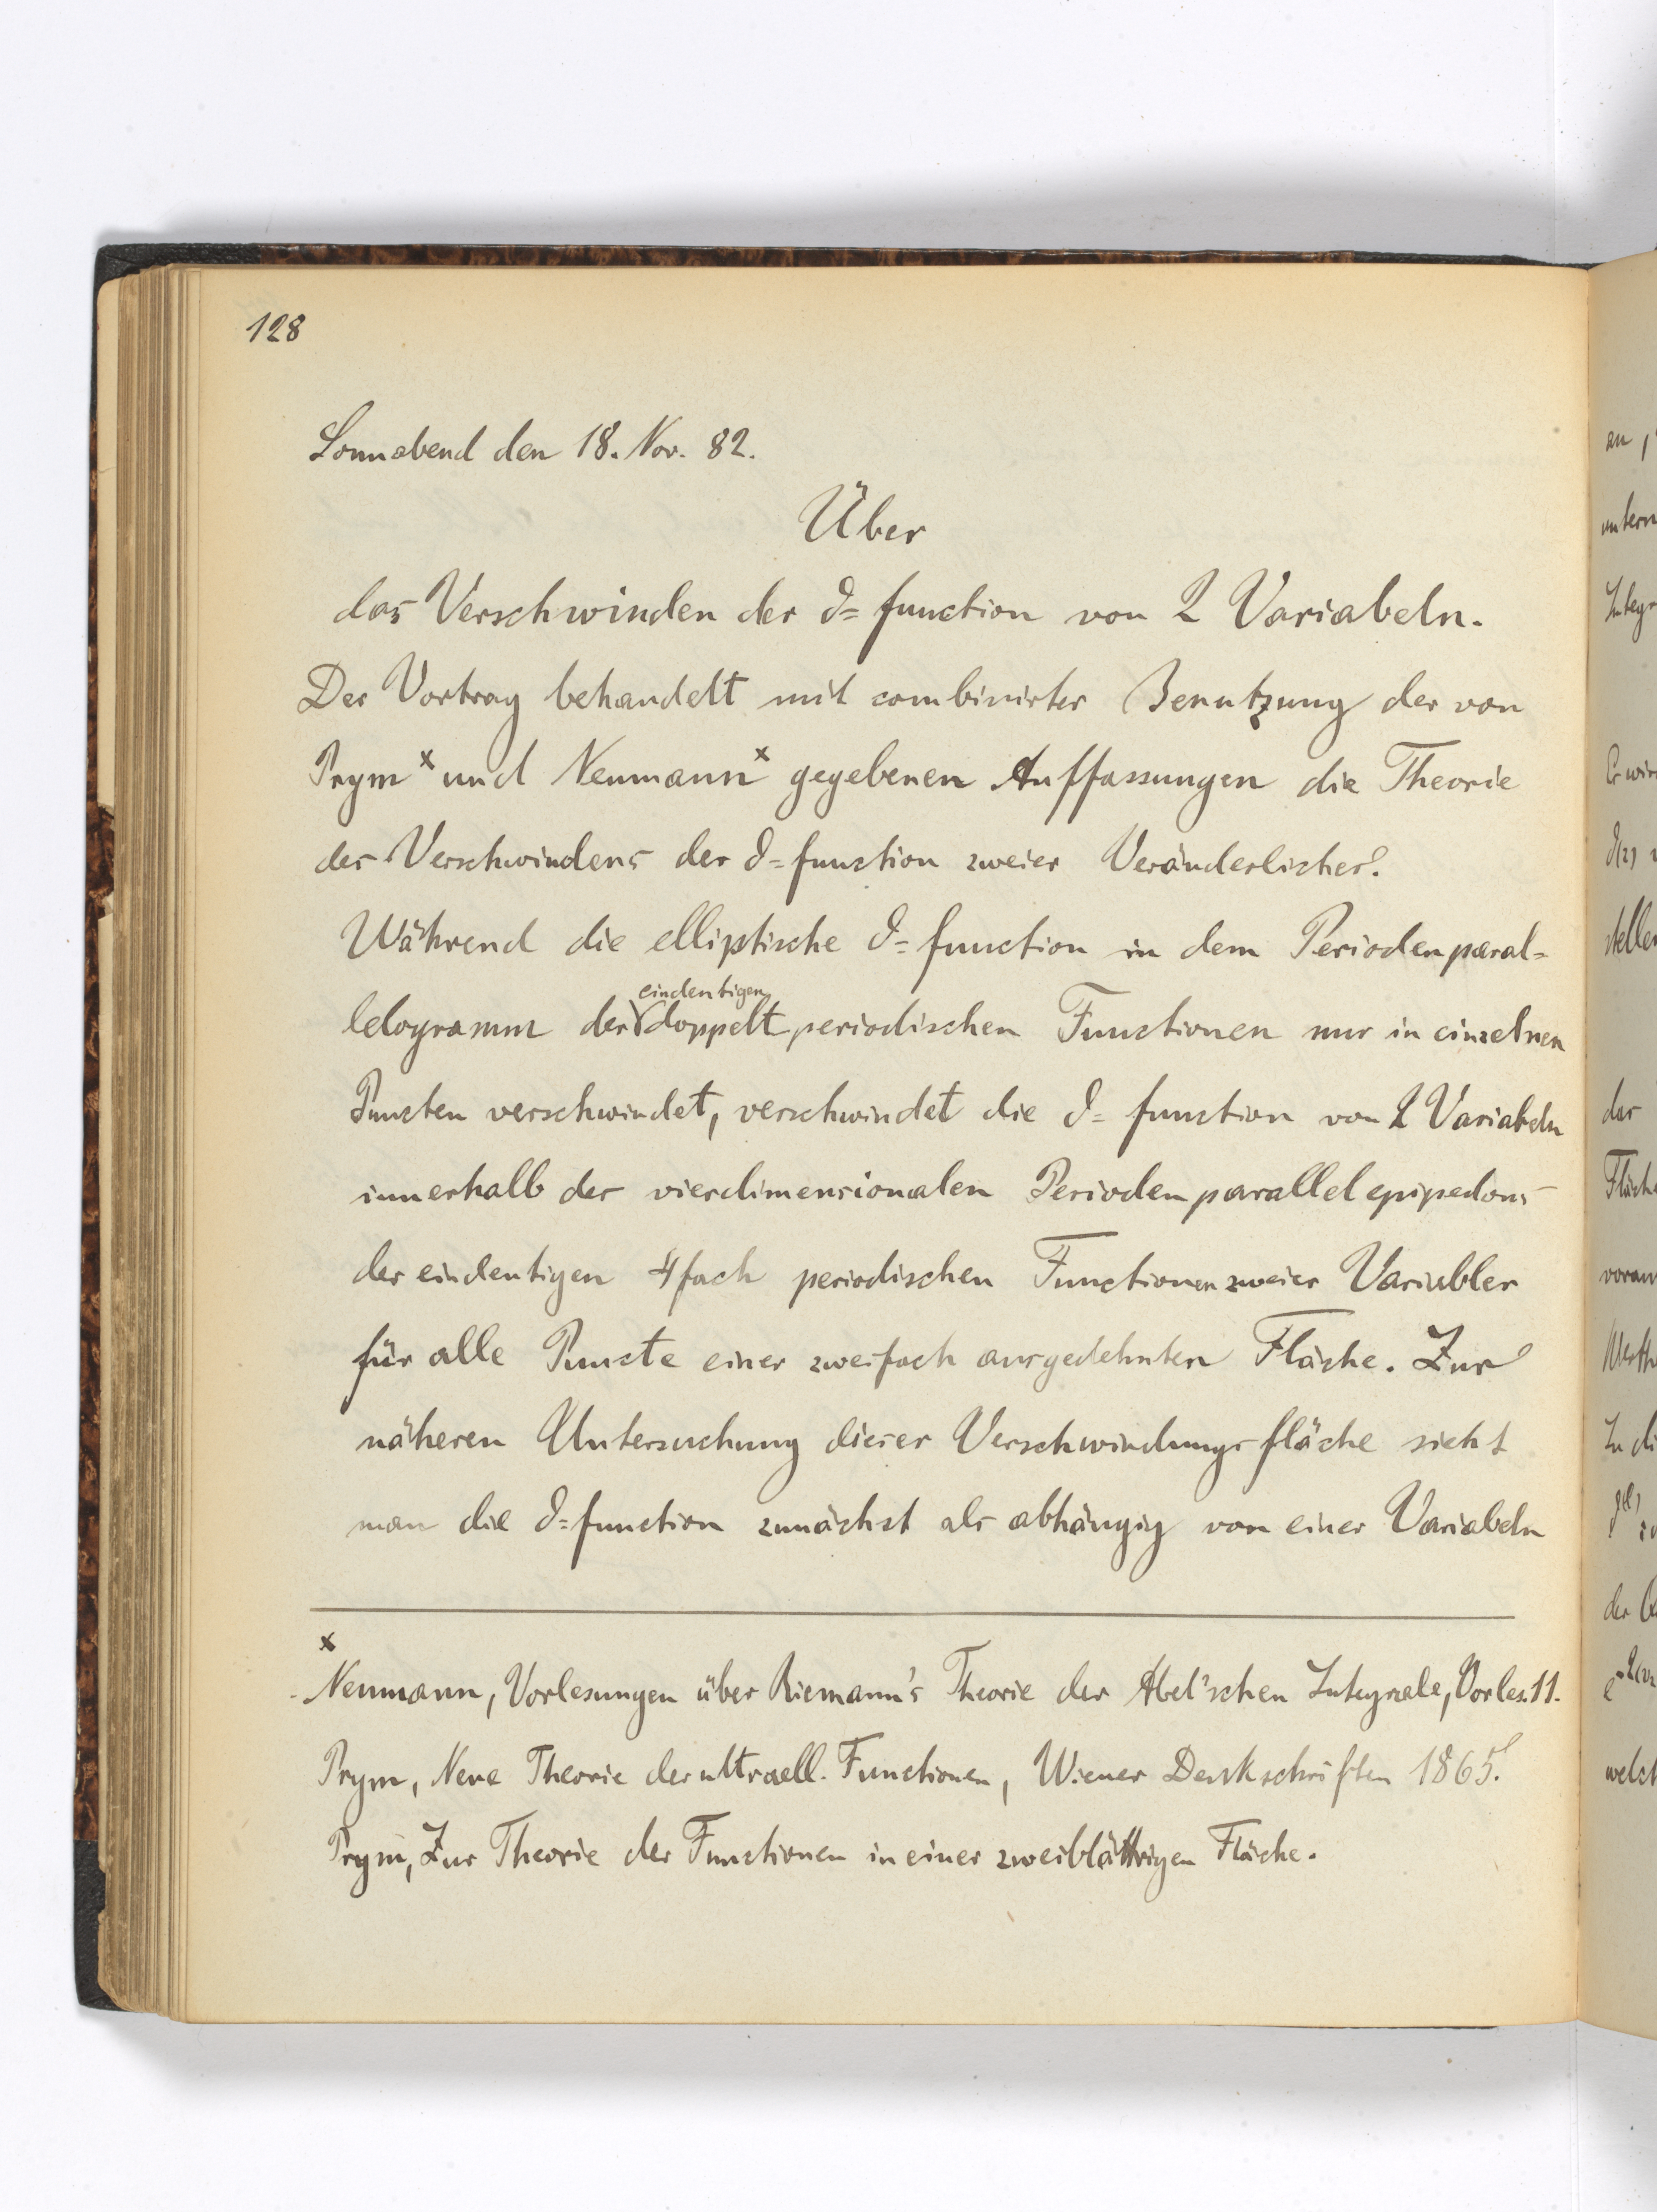 128
Sonnabend den 18. Nov. 82.
Über
das Verschwinden der ϑ=function von 2 Variabeln.
Der Vortrag behandelt mit combinirter Benutzung der von
Prym x und Neumann x gegebenen Auffassungen die Theorie
des Verschwindens der ϑ=function zweier Veränderlicher.
Während die elliptische ϑ=function in dem Periodenparal=
eindeutigen
lelogramm der doppelt periodischen Functionen nur in einzelnen
Puncten verschwindet, verschwindet die ϑ=function von 2 Variabeln
innerhalb des vierdimensionalen Periodenparallelepipedons
der eindeutigen 4fach periodischen Functionen zweier Variabler
für alle Puncte einer zweifach ausgedehnten Fläche. Zur
näheren Untersuchung dieser Verschwindungsfläche sieht
man die ϑ=function zunächst als abhängig von einer Variabeln
x
Neumann, Vorlesungen über Riemann's Theorie der Abel'schen Integrale, Vorles. 11.
Prym, Neue Theorie der ultraell. Functionen, Wiener Denkschriften 1865.
Prym, Zur Theorie der Functionen in einer zweiblättrigen Fläche.
an,
untern
Integr
Er wir
stellen
der
Fläche
voraus
Werth
In di
welch